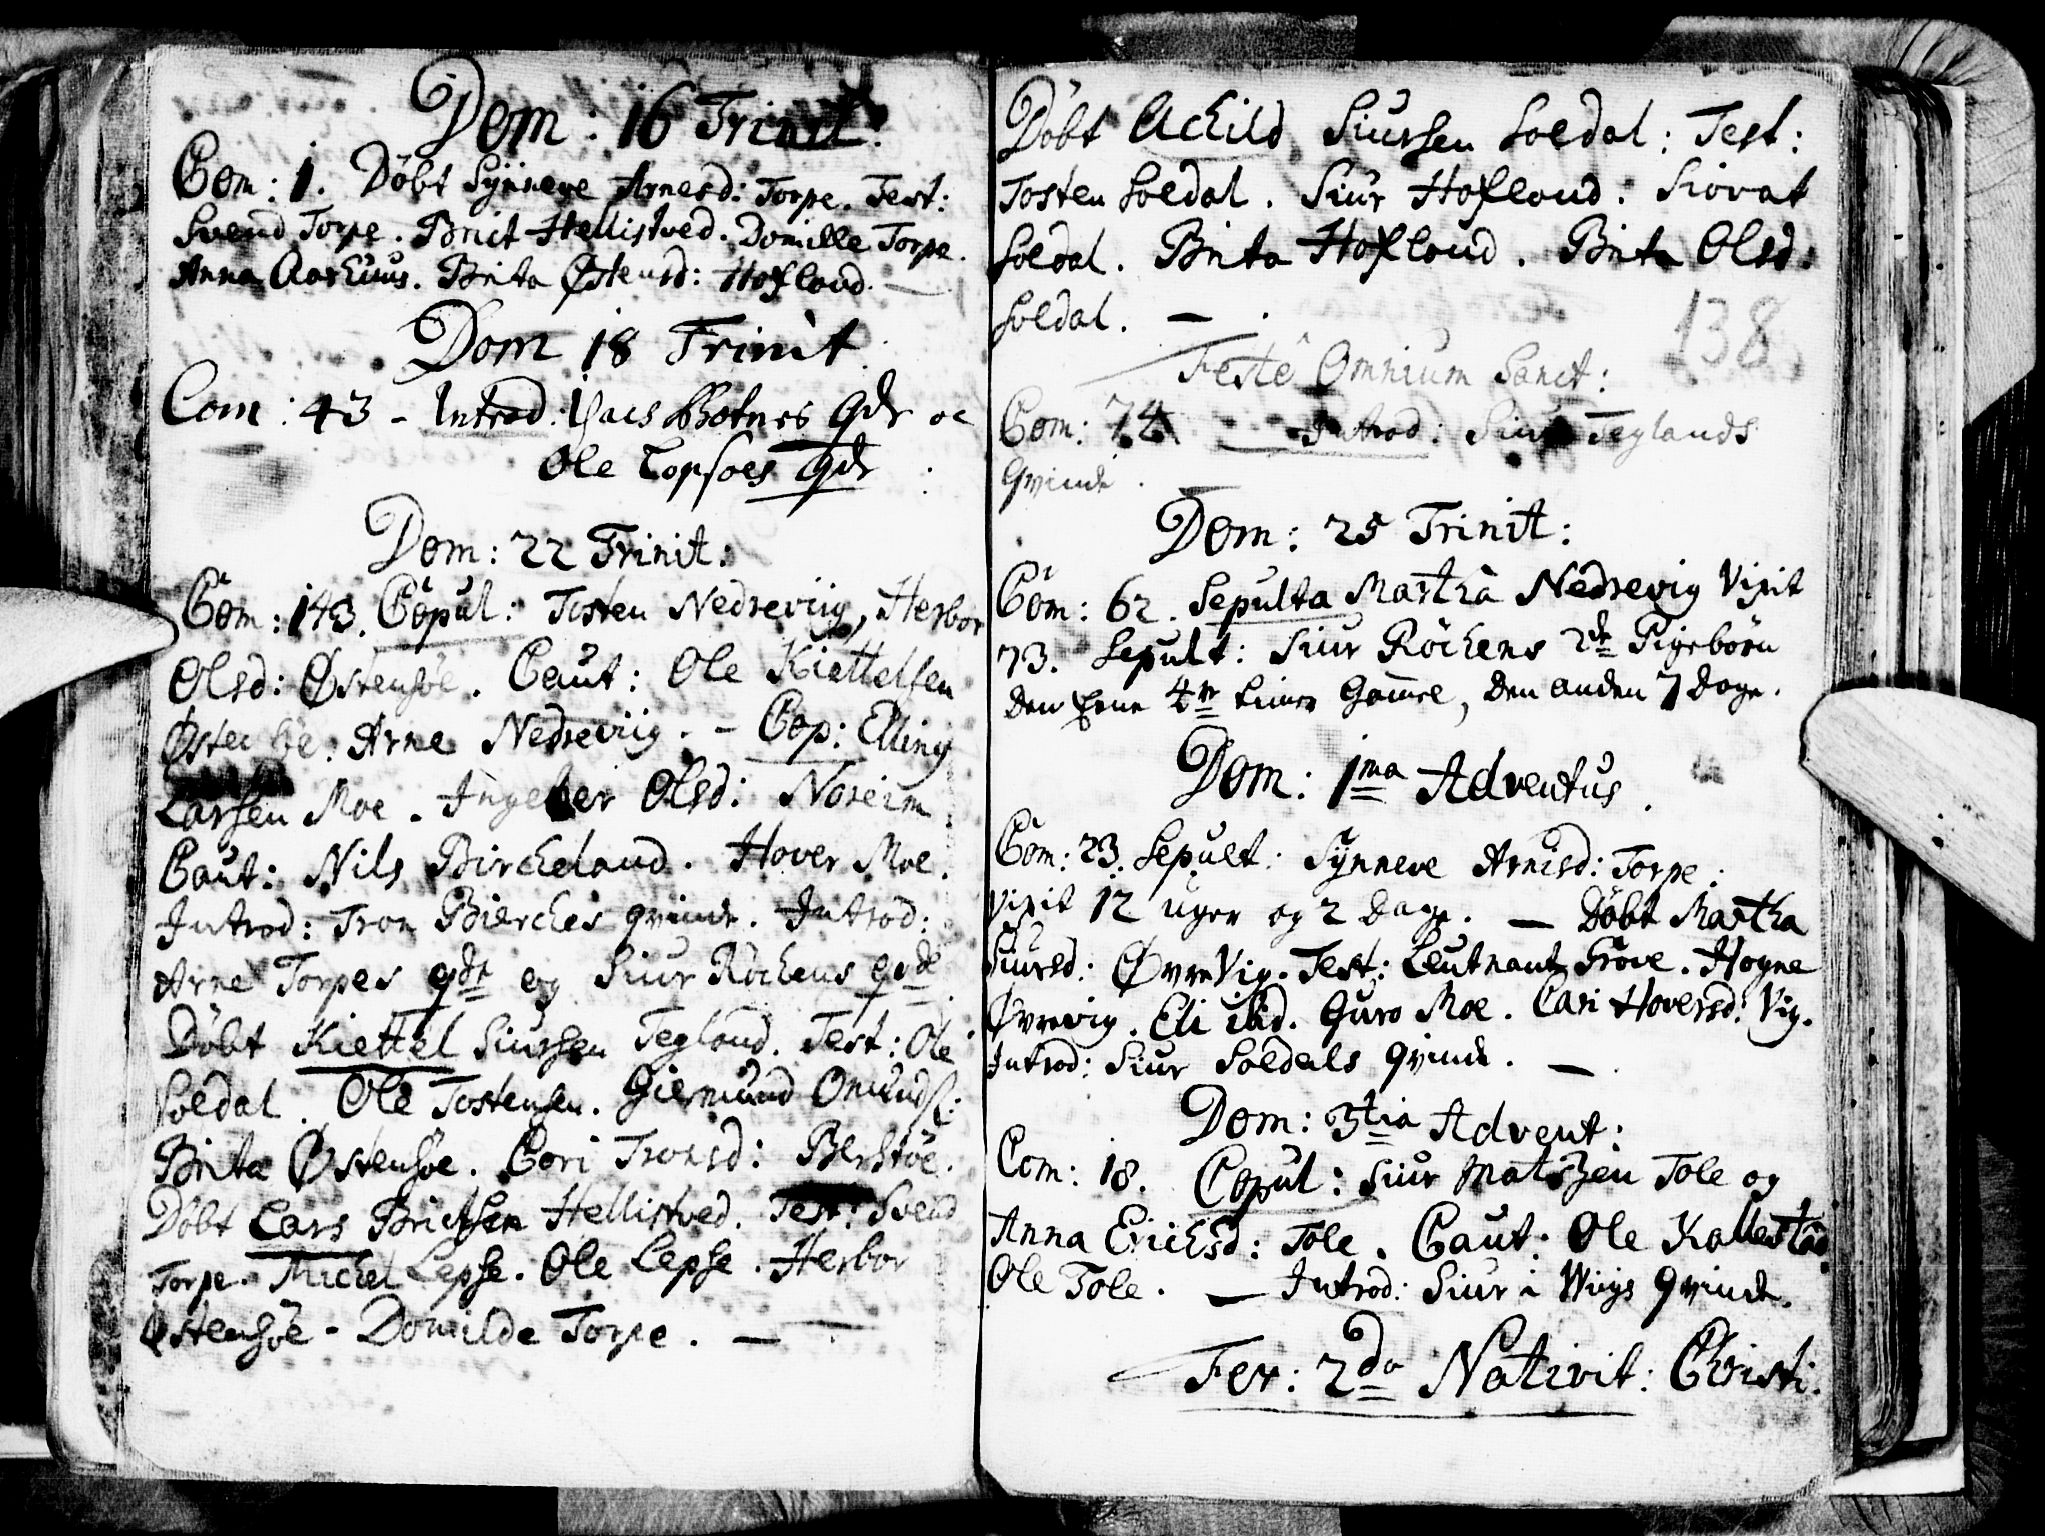 Dom: 16 Trinit:
Com: 1. Döbt Synneve Arnesd: Torpe. Test:
Svend Torpe. Brict Hellistved. Domille Torpe.
Anna Aarhuus. Brita Østensd: Hofland. —
Dom 18 Trinit
Com: 43 - Introd: Botnes Qdr oc
Ole Lopsoes Qdr
Dom: 22 Trinit:
Com: 143. Copul: Tosten Nedreviig, Herbor
Olsd: Østensöe. Caut: Ole Kiettelsen
Arne Nedreviig. - Cop: Elling
Larssen Moe. Ingeber Olsd: Noreim.
Caut: Nils Bircheland. Hover Moe.
Introd: Tron Bierches qvinde. Introd:
Arne Torpes qde og Siur Röchens qde.
Döbt Kiettel Siurssen Tegland. Test: Ole
Soedal. Ole Tostensen. Giermund Omunds:
Brita Østensöe. Cari Tronsd: Berstöe.
Döbt Lars Brictsen Hellistved. Test: Svend
Torpe. Michel Lepse. Ole Lepse. Herbor
Østensöe - Domilde Torpe. —
Döbt Achild Siurssen Soedal: Test:
Tosten Soedal. Siur Hofland. Siovat
Soedal. Brita Hofland. Brita Olsd:
Soedal. —
138
Festo Omnium Sanct:
Com: 74 — Introd: Siur Teglands
Qvinde.
Dom: 25 Trinit:
Com: 62. Sepulta Martha Nedrevig Vixit
73. Sepult: Siur Röchens 2de Pigebörn
den Erne 4re timer Gamle, den anden 7 dage.
Dom: 1ma Adventus.
Com: 23. Sepult: Synneve Arnisd: Torpe.
vixit 12 uger og 2 dage. — Döbt Martha
Siursd: ØvreVig. Test: Leutnant Frove. Hogne
Øvrevig. Eli ibd. Guro Moe. Cari Hoversd: Vig.
Introd: Siur Soldals Qvinde. —
Dom: 3tia Advent:
Com: 18. Copul: Siur Matszen Tole og
Anna Erichsd: Tole. Caut: Ole Kallestad
Ole Tole. — Introd: Siur i Wiigs Qvinde.
Fer: 2da Nativit: Christi: